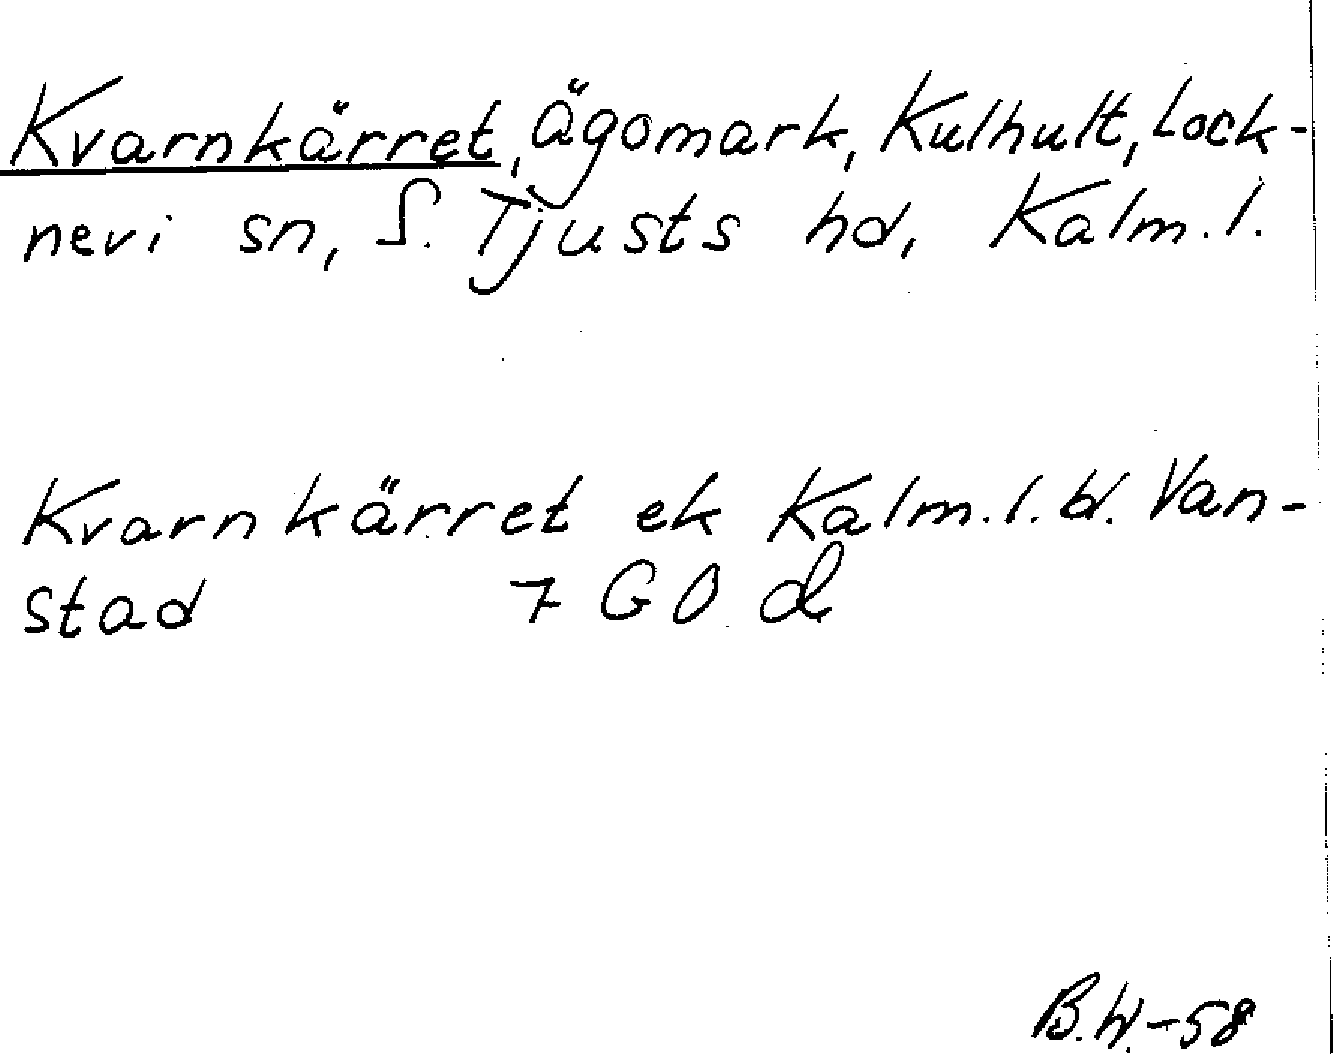 Kvarnkärret, ägomark, Kulhult, Lock-
nevi sn, S. Tjusts hd, Kalm. l.
Kvarnkärret ek Kalm. l. bl. Van-
stad 7 G O d
B.W.-58